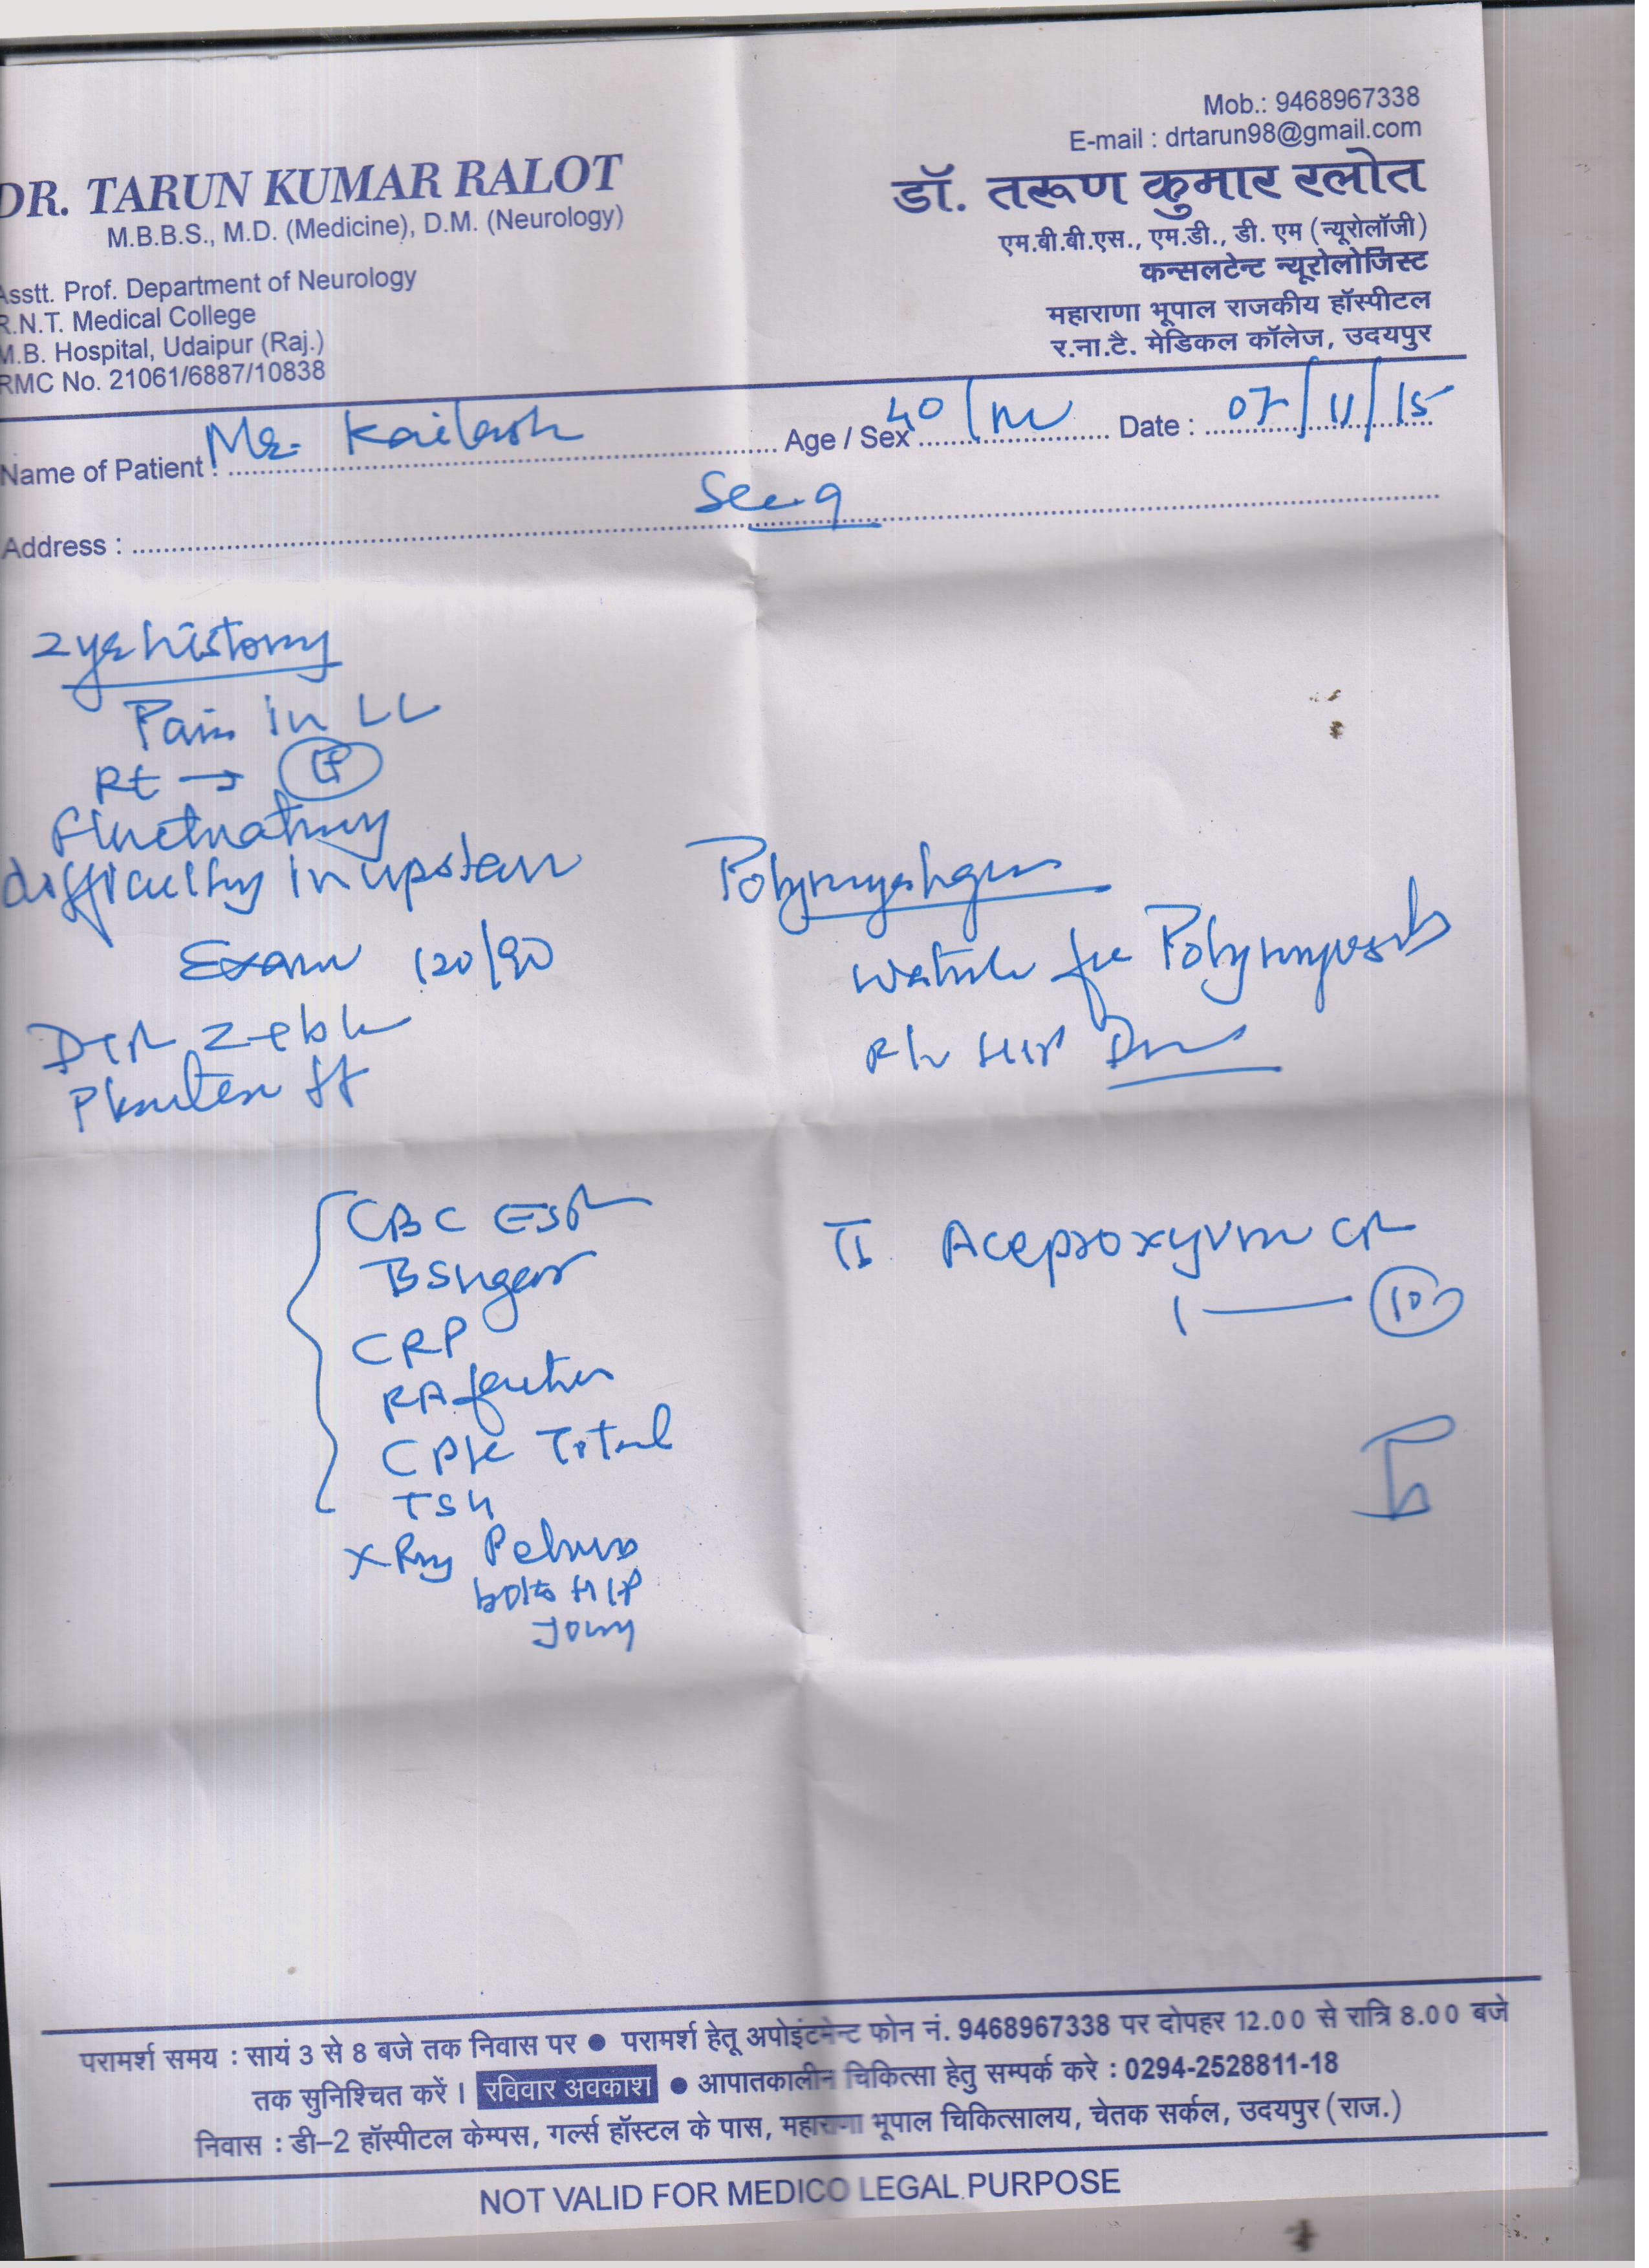 Mob.: 9468967338
E-mail : drtarun98@gmail.com
DR. TARUN KUMAR RALOT
M.B.B.S., M.D. (Medicine), D.M. (Neurology)
Asstt. Prof. Department of Neurology
R.N.T. Medical College
M.B. Hospital, Udaipur (Raj.)
RMC No. 21061/6887/10838
डॉ. तरूण कुमार रलोत
एम.बी.बी.एस., एम.डी., डी. एम (न्यूरोलॉजी)
कन्सलटेन्ट न्यूरोलोजिस्ट
महाराणा भूपाल राजकीय हॉस्पीटल
र.ना.टै. मेडिकल कॉलेज, उदयपुर
Name of Patient : Mr. Kailash Age / Sex 40/m Date : 07/11/15
Address :
2 yr history
Pain in LL
Rt →
Fluctuating
difficulty in
Exam 120/90
Polymyalgia
for Polymyositis
R/o HIP
CBC ESR
BSugar
CRP
RA factor
CPK Total
TSH
X Ray Pelvis
both HIP
Joint
Aceproxyvon CR
1 — 10
परामर्श समय : सायं 3 से 8 बजे तक निवास पर ● परामर्श हेतू अपोइंटमेन्ट फोन नं. 9468967338 पर दोपहर 12.00 से रात्रि 8.00 बजे
तक सुनिश्चित करें । रविवार अवकाश ● आपातकालीन चिकित्सा हेतु सम्पर्क करे : 0294-2528811-18
निवास : डी-2 हॉस्पीटल केम्पस, गर्ल्स हॉस्टल के पास, महाराणा भूपाल चिकित्सालय, चेतक सर्कल, उदयपुर (राज.)
NOT VALID FOR MEDICO LEGAL PURPOSE